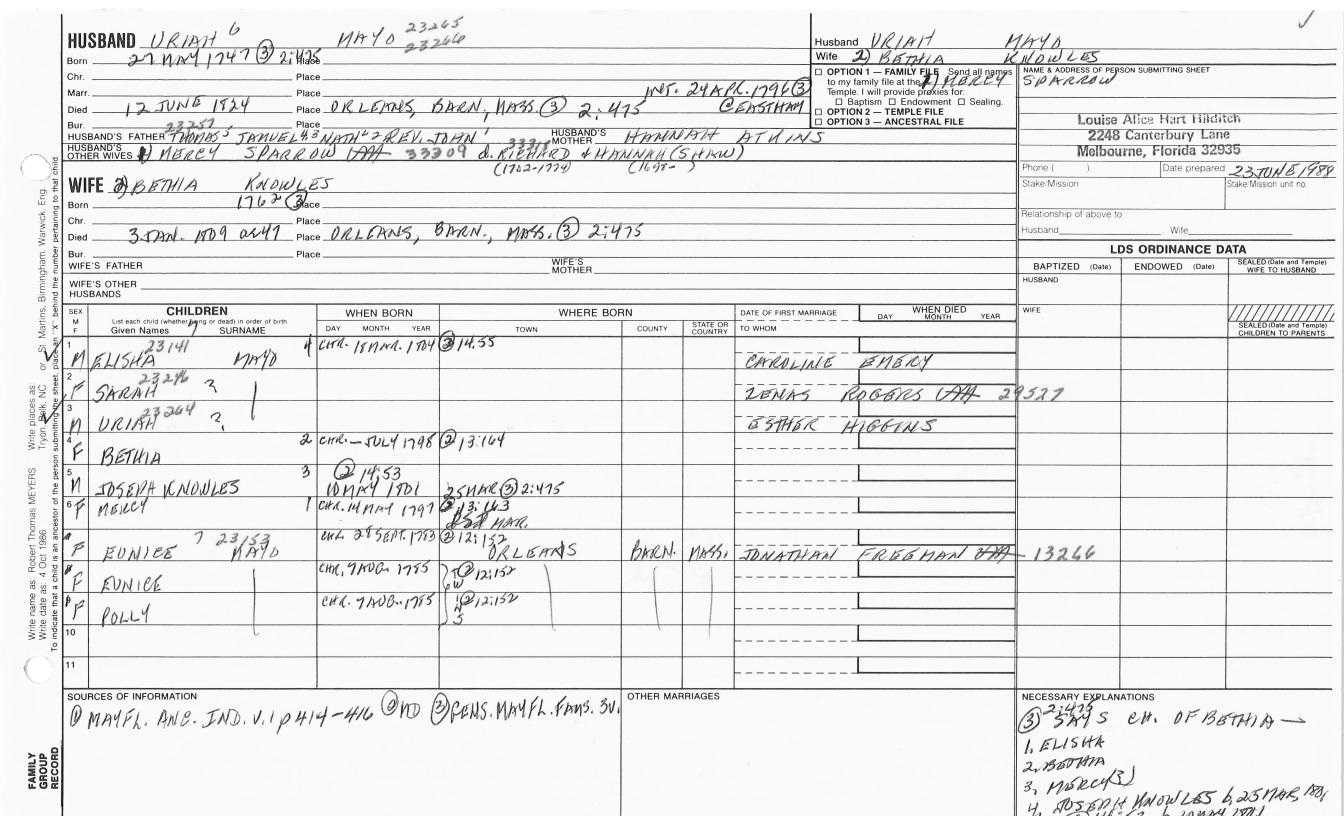 HUSBAND URIAH 6 MAYO 23265
23266
Born 27 MAY 1747 (3) 2:475 Place
Chr. Place
Marr. Place INT. 24 APR. 1796 (3)
Died 12 JUNE 1824 Place ORLEANS, BARN, MASS. (3) 2:475 @ EASTHAM
Bur. Place
23257
HUSBAND'S FATHER THOMAS 5 SAMUEL 4,3 NATH'L 2 REV. JOHN 1 HUSBAND'S MOTHER HANNAH ATKINS
HUSBAND'S OTHER WIVES 1) MERCY SPARROW 33309 d. RICHARD & HANNAH (SHAW)
(1702-1774) (1698- )
WIFE 2) BETHIA KNOWLES
Born 1762 (3) Place
Chr. Place
Died 3 JAN. 1809 ae 47 Place ORLEANS, BARN., MASS. (3) 2:475
Bur. Place
WIFE'S FATHER WIFE'S MOTHER
WIFE'S OTHER HUSBANDS
Husband URIAH MAYO
Wife 2) BETHIA KNOWLES
1) MERCY SPARROW
☐ OPTION 1 — FAMILY FILE Send all names
to my family file at the
Temple. I will provide proxies for:
☐ Baptism ☐ Endowment ☐ Sealing.
☐ OPTION 2 — TEMPLE FILE
☐ OPTION 3 — ANCESTRAL FILE
NAME & ADDRESS OF PERSON SUBMITTING SHEET
Louise Alice Hart Hilditch
2248 Canterbury Lane
Melbourne, Florida 32935
Phone ( ) Date prepared 23 JUNE 1989
Stake/Mission Stake/Mission unit no.
Relationship of above to
Husband Wife
LDS ORDINANCE DATA
BAPTIZED (Date) ENDOWED (Date) SEALED (Date and Temple) WIFE TO HUSBAND
HUSBAND
WIFE
SEALED (Date and Temple) CHILDREN TO PARENTS
SEX M F CHILDREN WHEN BORN WHERE BORN DATE OF FIRST MARRIAGE WHEN DIED
List each child (whether living or dead) in order of birth
Given Names 7 SURNAME DAY MONTH YEAR TOWN COUNTY STATE OR COUNTRY TO WHOM DAY MONTH YEAR
1 M ELISHA 23141 MAYO 4 CHR. 18 MAR. 1804 (3) 14:55 CAROLINE EMERY
2 F SARAH 23246 ? ZENAS ROGERS 29527
3 M URIAH 23264 ? ESTHER HIGGINS
4 F BETHIA 2 CHR. — JULY 1798 (2) 13:164
5 M JOSEPH KNOWLES 3 (2) 14:53 10 MAY 1801 25 MAR (3) 2:475
6 F MERCY 1 CHR. 14 MAY 1797 (2) 13:163 MAR.
F EUNICE 7 23153 MAYO CHR. 28 SEPT. 1783 (2) 12:152 ORLEANS BARN. MASS. JONATHAN FREEMAN 13266
F EUNICE CHR. 7 AUG. 1785 (2) 12:152
F POLLY CHR. 7 AUG. 1785 (2) 12:152
10
11
SOURCES OF INFORMATION
(1) MAYFL. ANC. IND. V.1 p 414-416 (2) MD (3) GENS. MAYFL. FAMS. 3V.
OTHER MARRIAGES
NECESSARY EXPLANATIONS
2:475
(3) SAYS CH. OF BETHIA →
1. ELISHA
2. BETHIA
3. MERCY (3)
4. JOSEPH KNOWLES b. 25 MAR, 1801
Write name as: Robert Thomas MEYERS Write places as: Tryon, Polk, NC or St. Martins, Birmingham, Warwick, Eng.
Write date as: 4 Oct 1986
To indicate that a child is an ancestor of the person submitting the sheet, place an "X" behind the number pertaining to that child
FAMILY GROUP RECORD